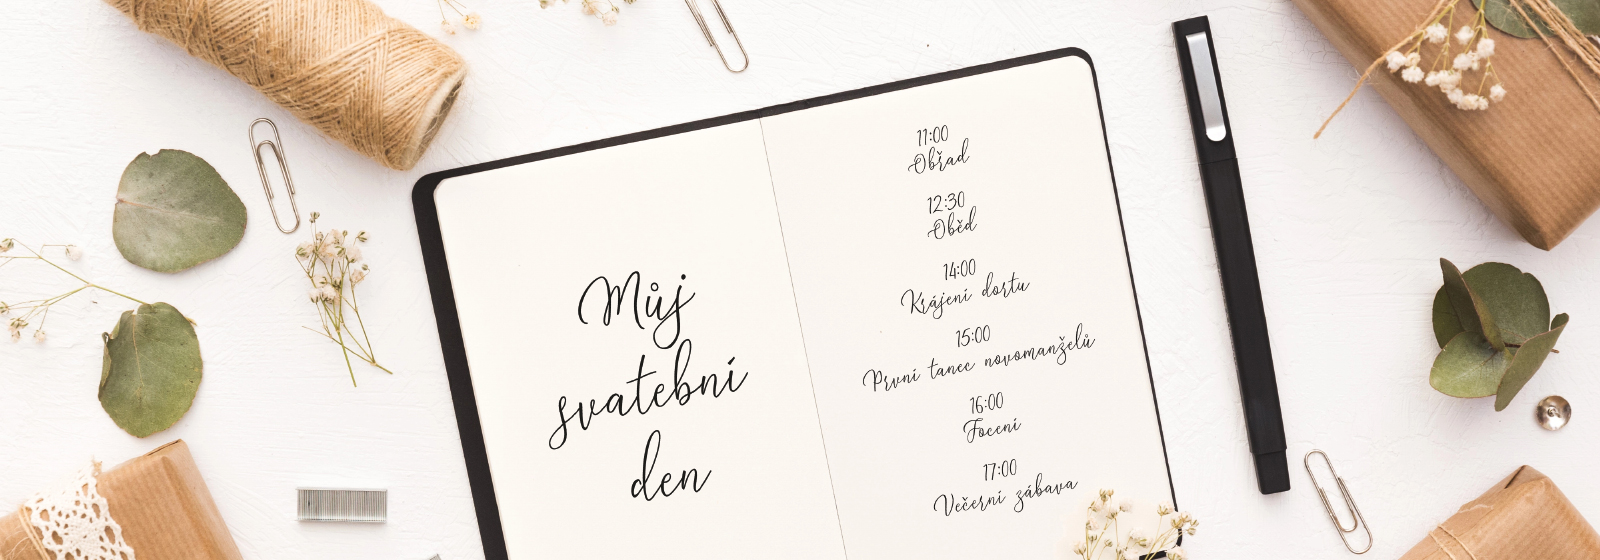 Můj
svatební
den
11:00
Obřad
12:30
Oběd
14:00
Krájení dortu
15:00
První tanec novomanželů
16:00
Focení
17:00
Večerní zábava